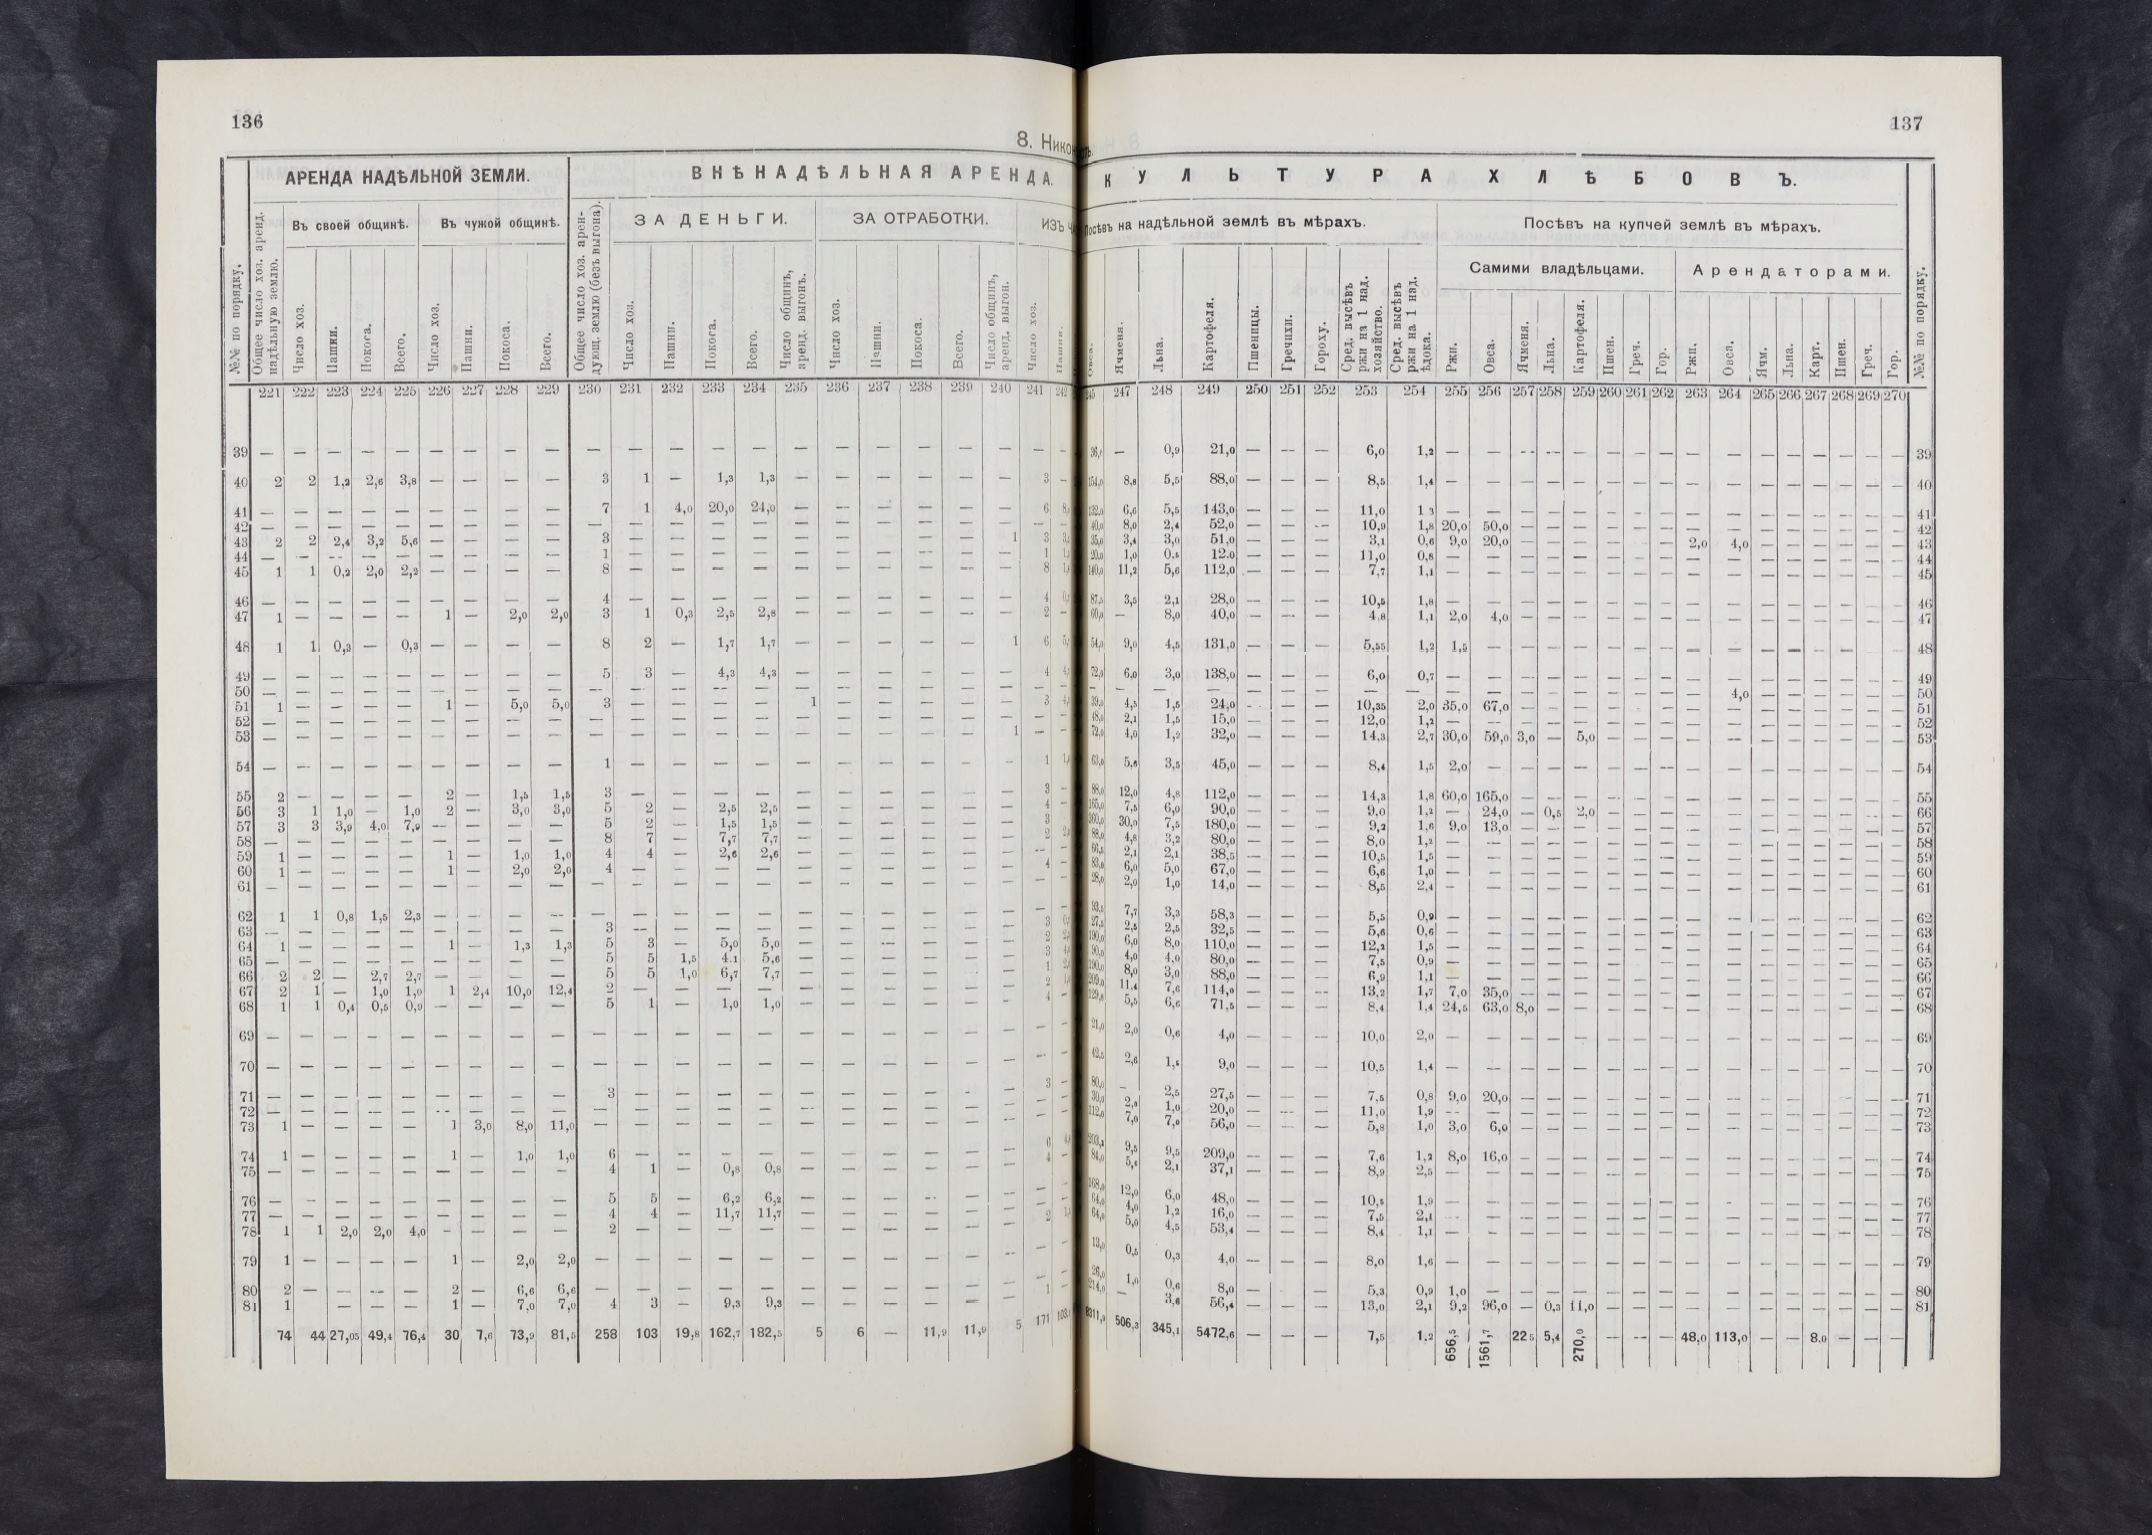 136
8. Нико
АРЕНДА НАДѢЛЬНОЙ ЗЕМЛИ.
ВНѢНАДѢЛЬНАЯ АРЕНДА.
№№ по порядку.
Общее число хоз. аренд. надѣльную землю.
Въ своей общинѣ.
Въ чужой общинѣ.
Общее число хоз. арендующ. землю (безъ выгона).
ЗА ДЕНЬГИ.
ЗА ОТРАБОТКИ.
ИЗЪ
Число хоз. Пашни. Покоса. Всего. Число хоз. Пашни. Покоса. Всего. Число хоз. Пашни. Покоса. Всего. Число общинъ, аренд. выгонъ. Число хоз. Пашни. Покоса. Всего. Число общинъ, аренд. выгон. Число хоз. Пашни.
221 222 223 224 225 226 227 228 229 230 231 232 233 234 235 236 237 238 239 240 241 242
39 — — — — — — — — — — — — — — — — — — — — —
40 2 2 1,2 2,6 3,8 — — — — 3 1 — 1,3 1,3 — — — — — — 3 —
41 — — — — — — — — — 7 1 4,0 20,0 24,0 — — — — — — 6
42 — — — — — — — — — — — — — — — — — — — — —
43 2 2 2,4 3,2 5,6 — — — — 3 — — — — — — — — — 1 3
44 — — — — — — — — — 1 — — — — — — — — — — 1
45 1 1 0,2 2,0 2,2 — — — — 8 — — — — — — — — — — 8
46 — — — — — — — — — 4 — — — — — — — — — — 4
47 1 — — — — 1 — 2,0 2,0 3 1 0,3 2,5 2,8 — — — — — — 2 —
48 1 1 0,3 — 0,3 — — — — 8 2 — 1,7 1,7 — — — — — 1 6
49 — — — — — — — — — 5 3 — 4,3 4,3 — — — — — — 4
50 — — — — — — — — — — — — — — — — — — — — —
51 1 — — — — 1 — 5,0 5,0 3 — — — — 1 — — — — — 3
52 — — — — — — — — — — — — — — — — — — — — —
53 — — — — — — — — — — — — — — — — — — — 1 —
54 — — — — — — — — — 1 — — — — — — — — — — 1
55 2 — — — — 2 — 1,5 1,5 3 — — — — — — — — — — 3 —
56 3 1 1,0 — 1,0 2 — 3,0 3,0 5 2 — 2,5 2,5 — — — — — — 4 —
57 3 3 3,9 4,0 7,9 — — — — 5 2 — 1,5 1,5 — — — — — — 3 —
58 — — — — — — — — — 8 7 — 7,7 7,7 — — — — — — 2
59 1 — — — — 1 — 1,0 1,0 4 4 — 2,6 2,6 — — — — — — —
60 1 — — — — 1 — 2,0 2,0 4 — — — — — — — — — — 4 —
61 — — — — — — — — — — — — — — — — — — — — —
62 1 1 0,8 1,5 2,3 — — — — — — — — — — — — — — — —
63 — — — — — — — — — 3 — — — — — — — — — — 3
64 1 — — — — 1 — 1,3 1,3 5 3 — 5,0 5,0 — — — — — — 2
65 — — — — — — — — — 5 5 1,5 4,1 5,6 — — — — — — 3
66 2 2 — 2,7 2,7 — — — — 5 5 1,0 6,7 7,7 — — — — — — 1
67 2 1 — 1,0 1,0 1 2,4 10,0 12,4 2 — — — — — — — — — — 2
68 1 1 0,4 0,5 0,9 — — — — 5 1 — 1,0 1,0 — — — — — — 4 —
69 — — — — — — — — — — — — — — — — — — — — —
70 — — — — — — — — — — — — — — — — — — — — —
71 — — — — — — — — — 3 — — — — — — — — — — 3 —
72 — — — — — — — — — — — — — — — — — — — — —
73 1 — — — — 1 3,0 8,0 11,0 — — — — — — — — — — — —
74 1 — — — — 1 — 1,0 1,0 6 — — — — — — — — — — 6
75 — — — — — — — — — 4 1 — 0,8 0,8 — — — — — — 4 —
76 — — — — — — — — — 5 5 — 6,2 6,2 — — — — — — —
77 — — — — — — — — — 4 4 — 11,7 11,7 — — — — — — —
78 1 1 2,0 2,0 4,0 — — — — 2 — — — — — — — — — — 2
79 1 — — — — 1 — 2,0 2,0 — — — — — — — — — — — —
80 2 — — — — 2 — 6,6 6,6 — — — — — — — — — — — —
81 1 — — — 1 — 7,0 7,0 4 3 — 9,3 9,3 — — — — — — 1 —
74 44 27,05 49,4 76,4 30 7,6 73,9 81,5 258 103 19,8 162,7 182,5 5 6 — 11,9 11,9 5 171
137
КУЛЬТУРА ХЛѢБОВЪ.
Посѣвъ на надѣльной землѣ въ мѣрахъ.
Посѣвъ на купчей землѣ въ мѣрахъ.
Самими владѣльцами.
Арендаторами.
Овса. Ячменя. Льна. Картофеля. Пшеницы. Гречихи. Гороху. Сред. высѣвъ ржи на 1 над. хозяйство. Сред. высѣвъ ржи на 1 над. ѣдока. Ржи. Овса. Ячменя. Льна. Картофеля. Пшен. Греч. Гор. Ржи. Овса. Ячм. Льна. Карт. Пшен. Греч. Гор. №№ по порядку.
247 248 249 250 251 252 253 254 255 256 257 258 259 260 261 262 263 264 265 266 267 268 269 270
— 0,9 21,0 — — — 6,0 1,2 — — — — — — — — — — — — — — — — 39
154,0 8,8 5,5 88,0 — — — 8,5 1,4 — — — — — — — — — — — — — — — — 40
132,0 6,6 5,5 143,0 — — — 11,0 1 3 — — — — — — — — — — — — — — — — 41
40,0 8,0 2,4 52,0 — — — 10,9 1,8 20,0 50,0 — — — — — — — — — — — — — — 42
35,0 3,4 3,0 51,0 — — — 3,1 0,6 9,0 20,0 — — — — — — 2,0 4,0 — — — — — — 43
20,0 1,0 0,5 12,0 — — — 11,0 0,8 — — — — — — — — — — — — — — — — 44
140,0 11,2 5,6 112,0 — — — 7,7 1,1 — — — — — — — — — — — — — — — — 45
87,5 3,5 2,1 28,0 — — — 10,5 1,8 — — — — — — — — — — — — — — — — 46
60,0 — 8,0 40,0 — — — 4,8 1,1 2,0 4,0 — — — — — — — — — — — — — — 47
54,0 9,0 4,5 131,0 — — — 5,55 1,2 1,5 — — — — — — — — — — — — — — — 48
72,0 6,0 3,0 138,0 — — — 6,0 0,7 — — — — — — — — — — — — — — — — 49
— — — — — — — — — — — — — — — — — — 4,0 — — — — — — 50
39,0 4,5 1,5 24,0 — — — 10,35 2,0 35,0 67,0 — — — — — — — — — — — — — — 51
48,0 2,1 1,5 15,0 — — — 12,0 1,2 — — — — — — — — — — — — — — — — 52
72,0 4,0 1,2 32,0 — — — 14,3 2,7 30,0 59,0 3,0 — 5,0 — — — — — — — — — — — 53
63,0 5,6 3,5 45,0 — — — 8,4 1,5 2,0 — — — — — — — — — — — — — — — 54
88,0 12,0 4,8 112,0 — — — 14,3 1,8 60,0 165,0 — — — — — — — — — — — — — — 55
165,0 7,5 6,0 90,0 — — — 9,0 1,2 — 24,0 — 0,5 2,0 — — — — — — — — — — — 56
360,0 30,0 7,5 180,0 — — — 9,2 1,6 9,0 13,0 — — — — — — — — — — — — — — 57
88,0 4,8 3,2 80,0 — — — 8,0 1,2 — — — — — — — — — — — — — — — — 58
66,5 2,1 2,1 38,5 — — — 10,5 1,5 — — — — — — — — — — — — — — — — 59
83,0 6,0 5,0 67,0 — — — 6,6 1,0 — — — — — — — — — — — — — — — — 60
28,0 2,0 1,0 14,0 — — — 8,5 2,4 — — — — — — — — — — — — — — — — 61
93,5 7,7 3,3 58,3 — — — 5,5 0,9 — — — — — — — — — — — — — — — — 62
27,5 2,5 2,5 32,5 — — — 5,6 0,6 — — — — — — — — — — — — — — — — 63
190,0 6,0 8,0 110,0 — — — 12,2 1,5 — — — — — — — — — — — — — — — — 64
90,0 4,0 4,0 80,0 — — — 7,5 0,9 — — — — — — — — — — — — — — — — 65
190,0 8,0 3,0 88,0 — — — 6,9 1,1 — — — — — — — — — — — — — — — — 66
11,4 7,6 114,0 — — — 13,2 1,7 7,0 35,0 — — — — — — — — — — — — — — 67
5,5 6,6 71,5 — — — 8,4 1,4 24,5 63,0 8,0 — — — — — — — — — — — — — 68
21,0 2,0 0,6 4,0 — — — 10,0 2,0 — — — — — — — — — — — — — — — — 69
42,5 2,6 1,5 9,0 — — — 10,5 1,4 — — — — — — — — — — — — — — — — 70
80,0 — 2,5 27,5 — — — 7,5 0,8 9,0 20,0 — — — — — — — — — — — — — — 71
30,0 1,0 20,0 — — — 11,0 1,9 — — — — — — — — — — — — — — — — 72
112,0 7,0 7,0 56,0 — — — 5,8 1,0 3,0 6,0 — — — — — — — — — — — — — — 73
9,5 9,5 209,0 — — — 7,6 1,2 8,0 16,0 — — — — — — — — — — — — — — 74
84,0 5,4 2,1 37,1 — — — 8,9 2,5 — — — — — — — — — — — — — — — — 75
168,0 12,0 6,0 48,0 — — — 10,5 1,9 — — — — — — — — — — — — — — — — 76
64,0 4,0 1,2 16,0 — — — 7,5 2,1 — — — — — — — — — — — — — — — — 77
64,0 5,0 4,5 53,4 — — — 8,4 1,1 — — — — — — — — — — — — — — — — 78
13,0 0,5 0,3 4,0 — — — 8,0 1,6 — — — — — — — — — — — — — — — — 79
26,0 1,0 0,6 8,0 — — — 5,3 0,9 1,0 — — — — — — — — — — — — — — — 80
214,0 — 3,6 56,4 — — — 13,0 2,1 9,2 96,0 — 0,3 11,0 — — — — — — — — — — — 81
506,3 345,1 5472,6 — — — 7,5 1,2 656,5 1561,7 22 5 5,4 270,0 — — — 48,0 113,0 — — 8,0 — — —